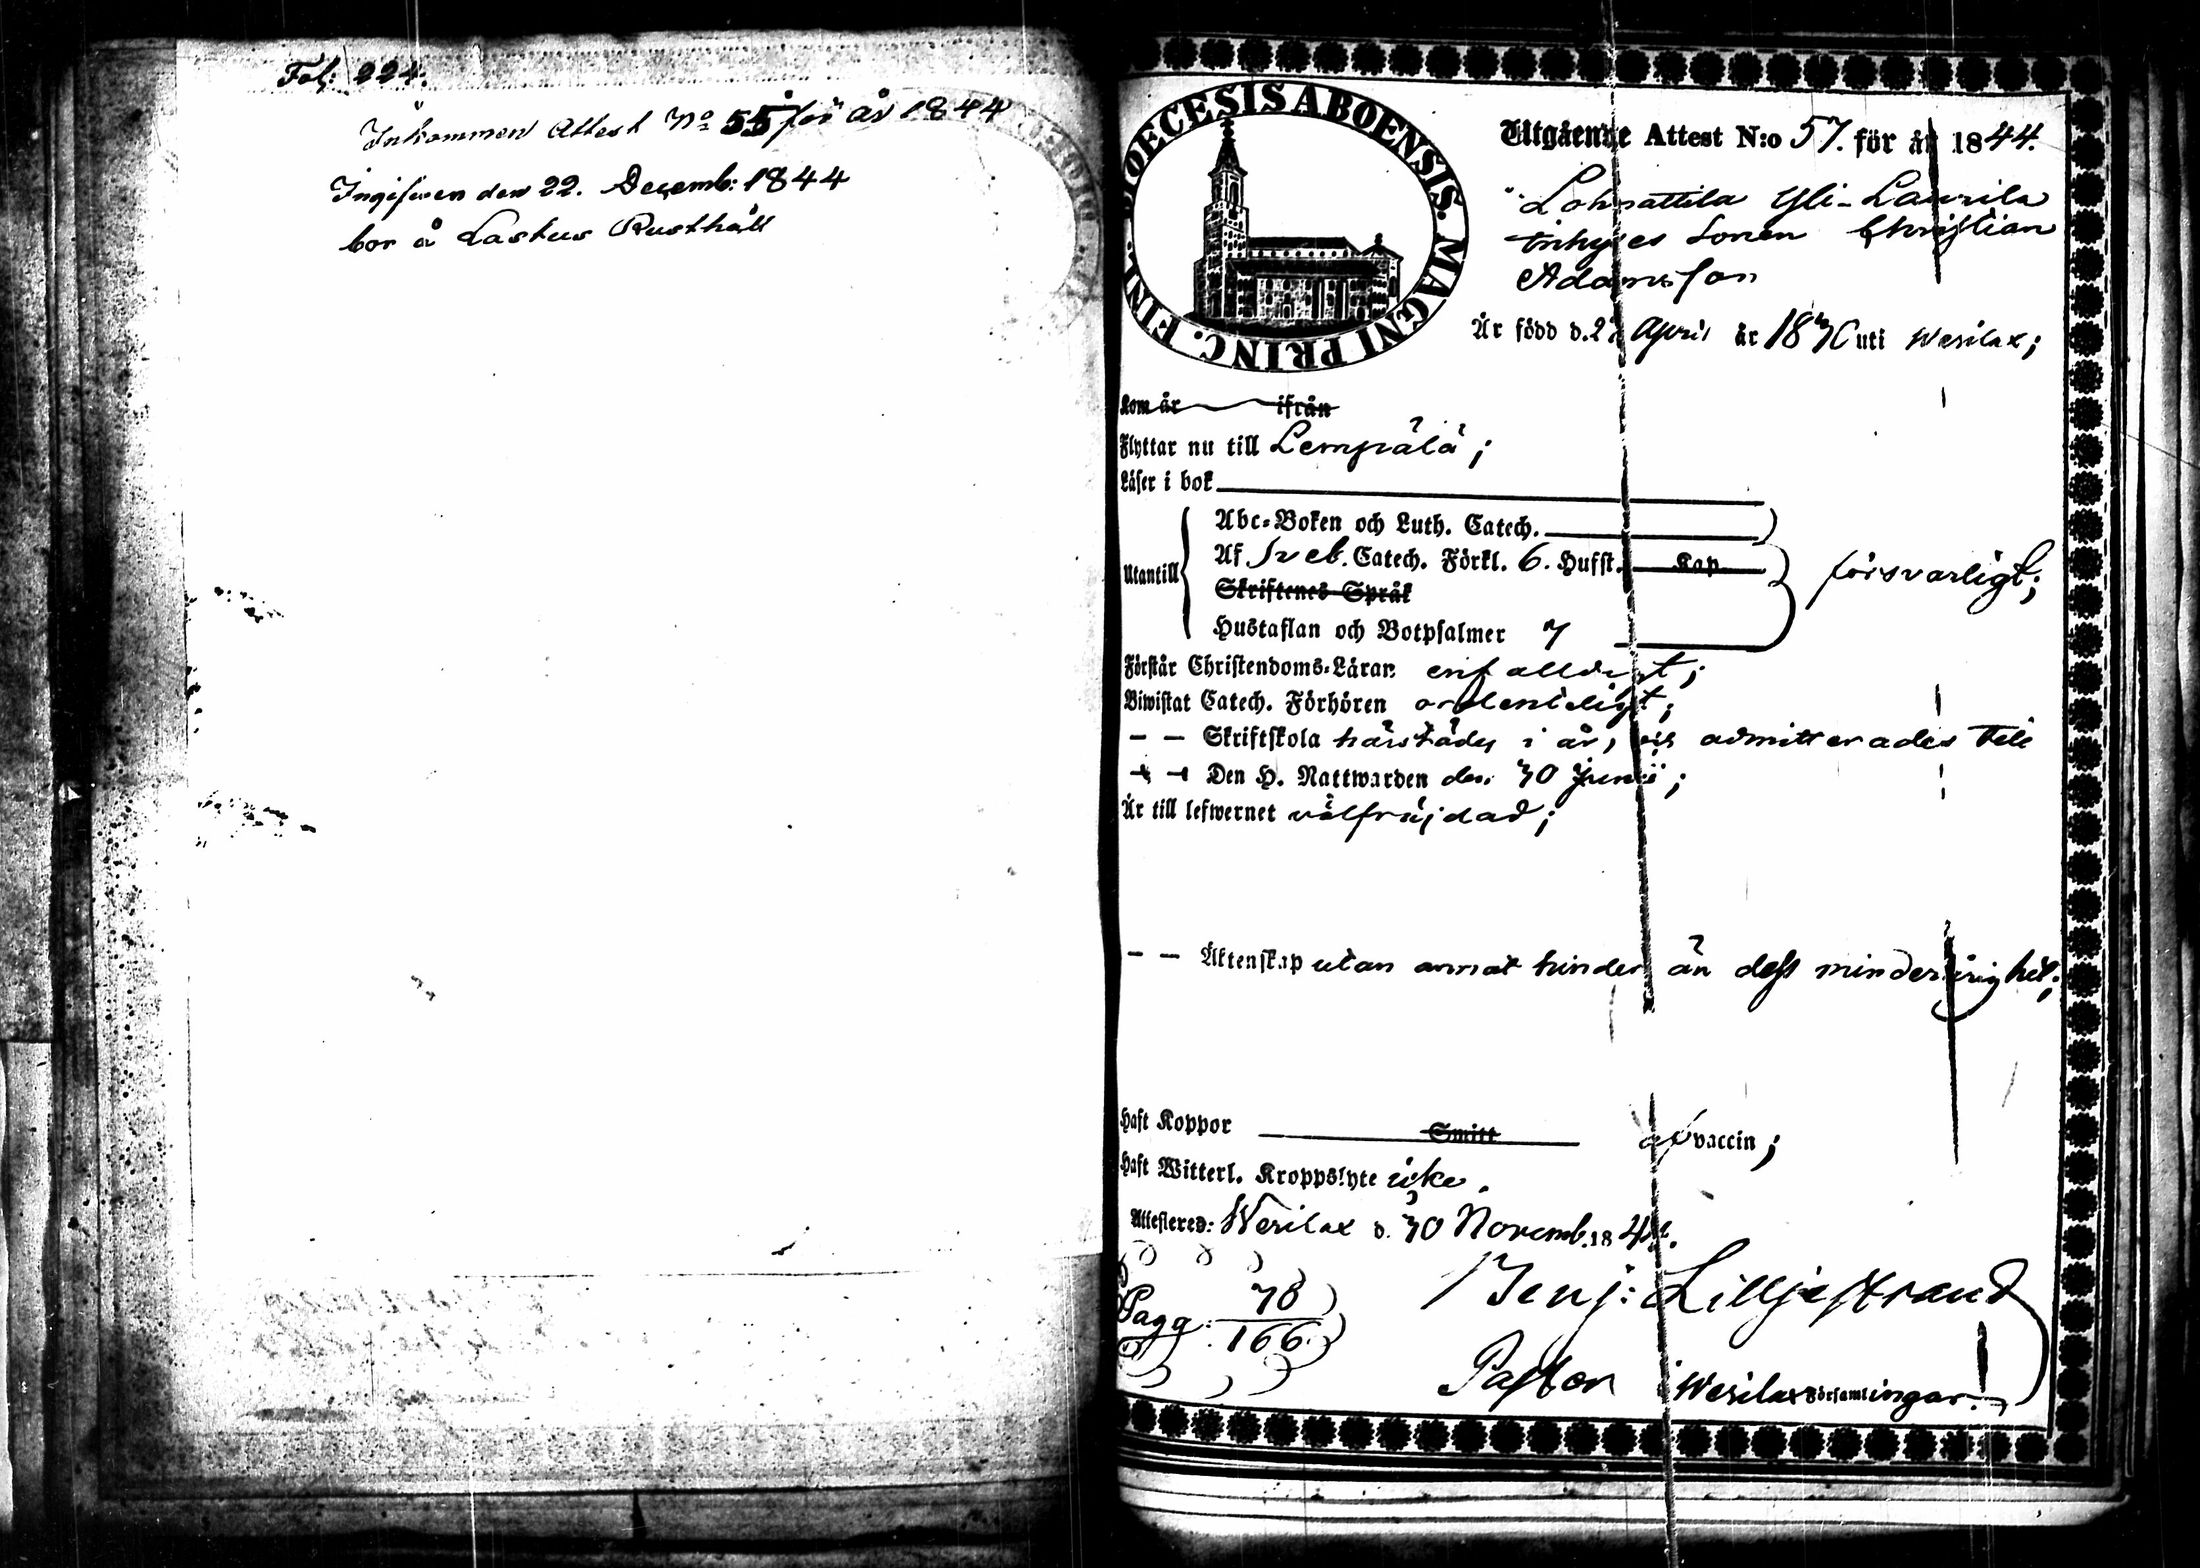 Fol: 224.
Inkommen Attest No 55 för år 1844
Ingifwen den 22. Decemb: 1844
bor å Lastus Rusthåll
DIOECESIS ABOENSIS. MAGNI PRINC. FINL.
Utgående Attest N:o 57. för år 1844.
Lohnattila Yli-Laurila
inhyses sonen Christian
Adamsson
Är född d. April år uti Wesilax;
Kom år ifrån
Flyttar nu till Lempälä;
Läser i bok
Utantill
Abc-Boken och Luth. Catech.
Af Sveb. Catech. Förkl. 6. Hufst. Kap
Skriftenes Språk
Hustaflan och Botpsalmer 7
försvarligt;
Förstår Christendoms-Läran enfalldigt;
Biwistat Catech. Förhören ordenteligt;
— — Skriftskola härstädes i år, admitterades till
— — Den H. Nattwarden den 30 Junii;
Är till lefwernet välfräjdad;
— — Äktenskap utan annat hinder än dess minderårighet;
Haft Koppor Smitt af vaccin;
Haft Witterl. Kroppslyte icke.
Attesterad: Wesilax d. 30 Novemb. 1844.
Benj: Lilljestrand
Pagg: 78
166.
Pastor i Wesilax Församlingar.